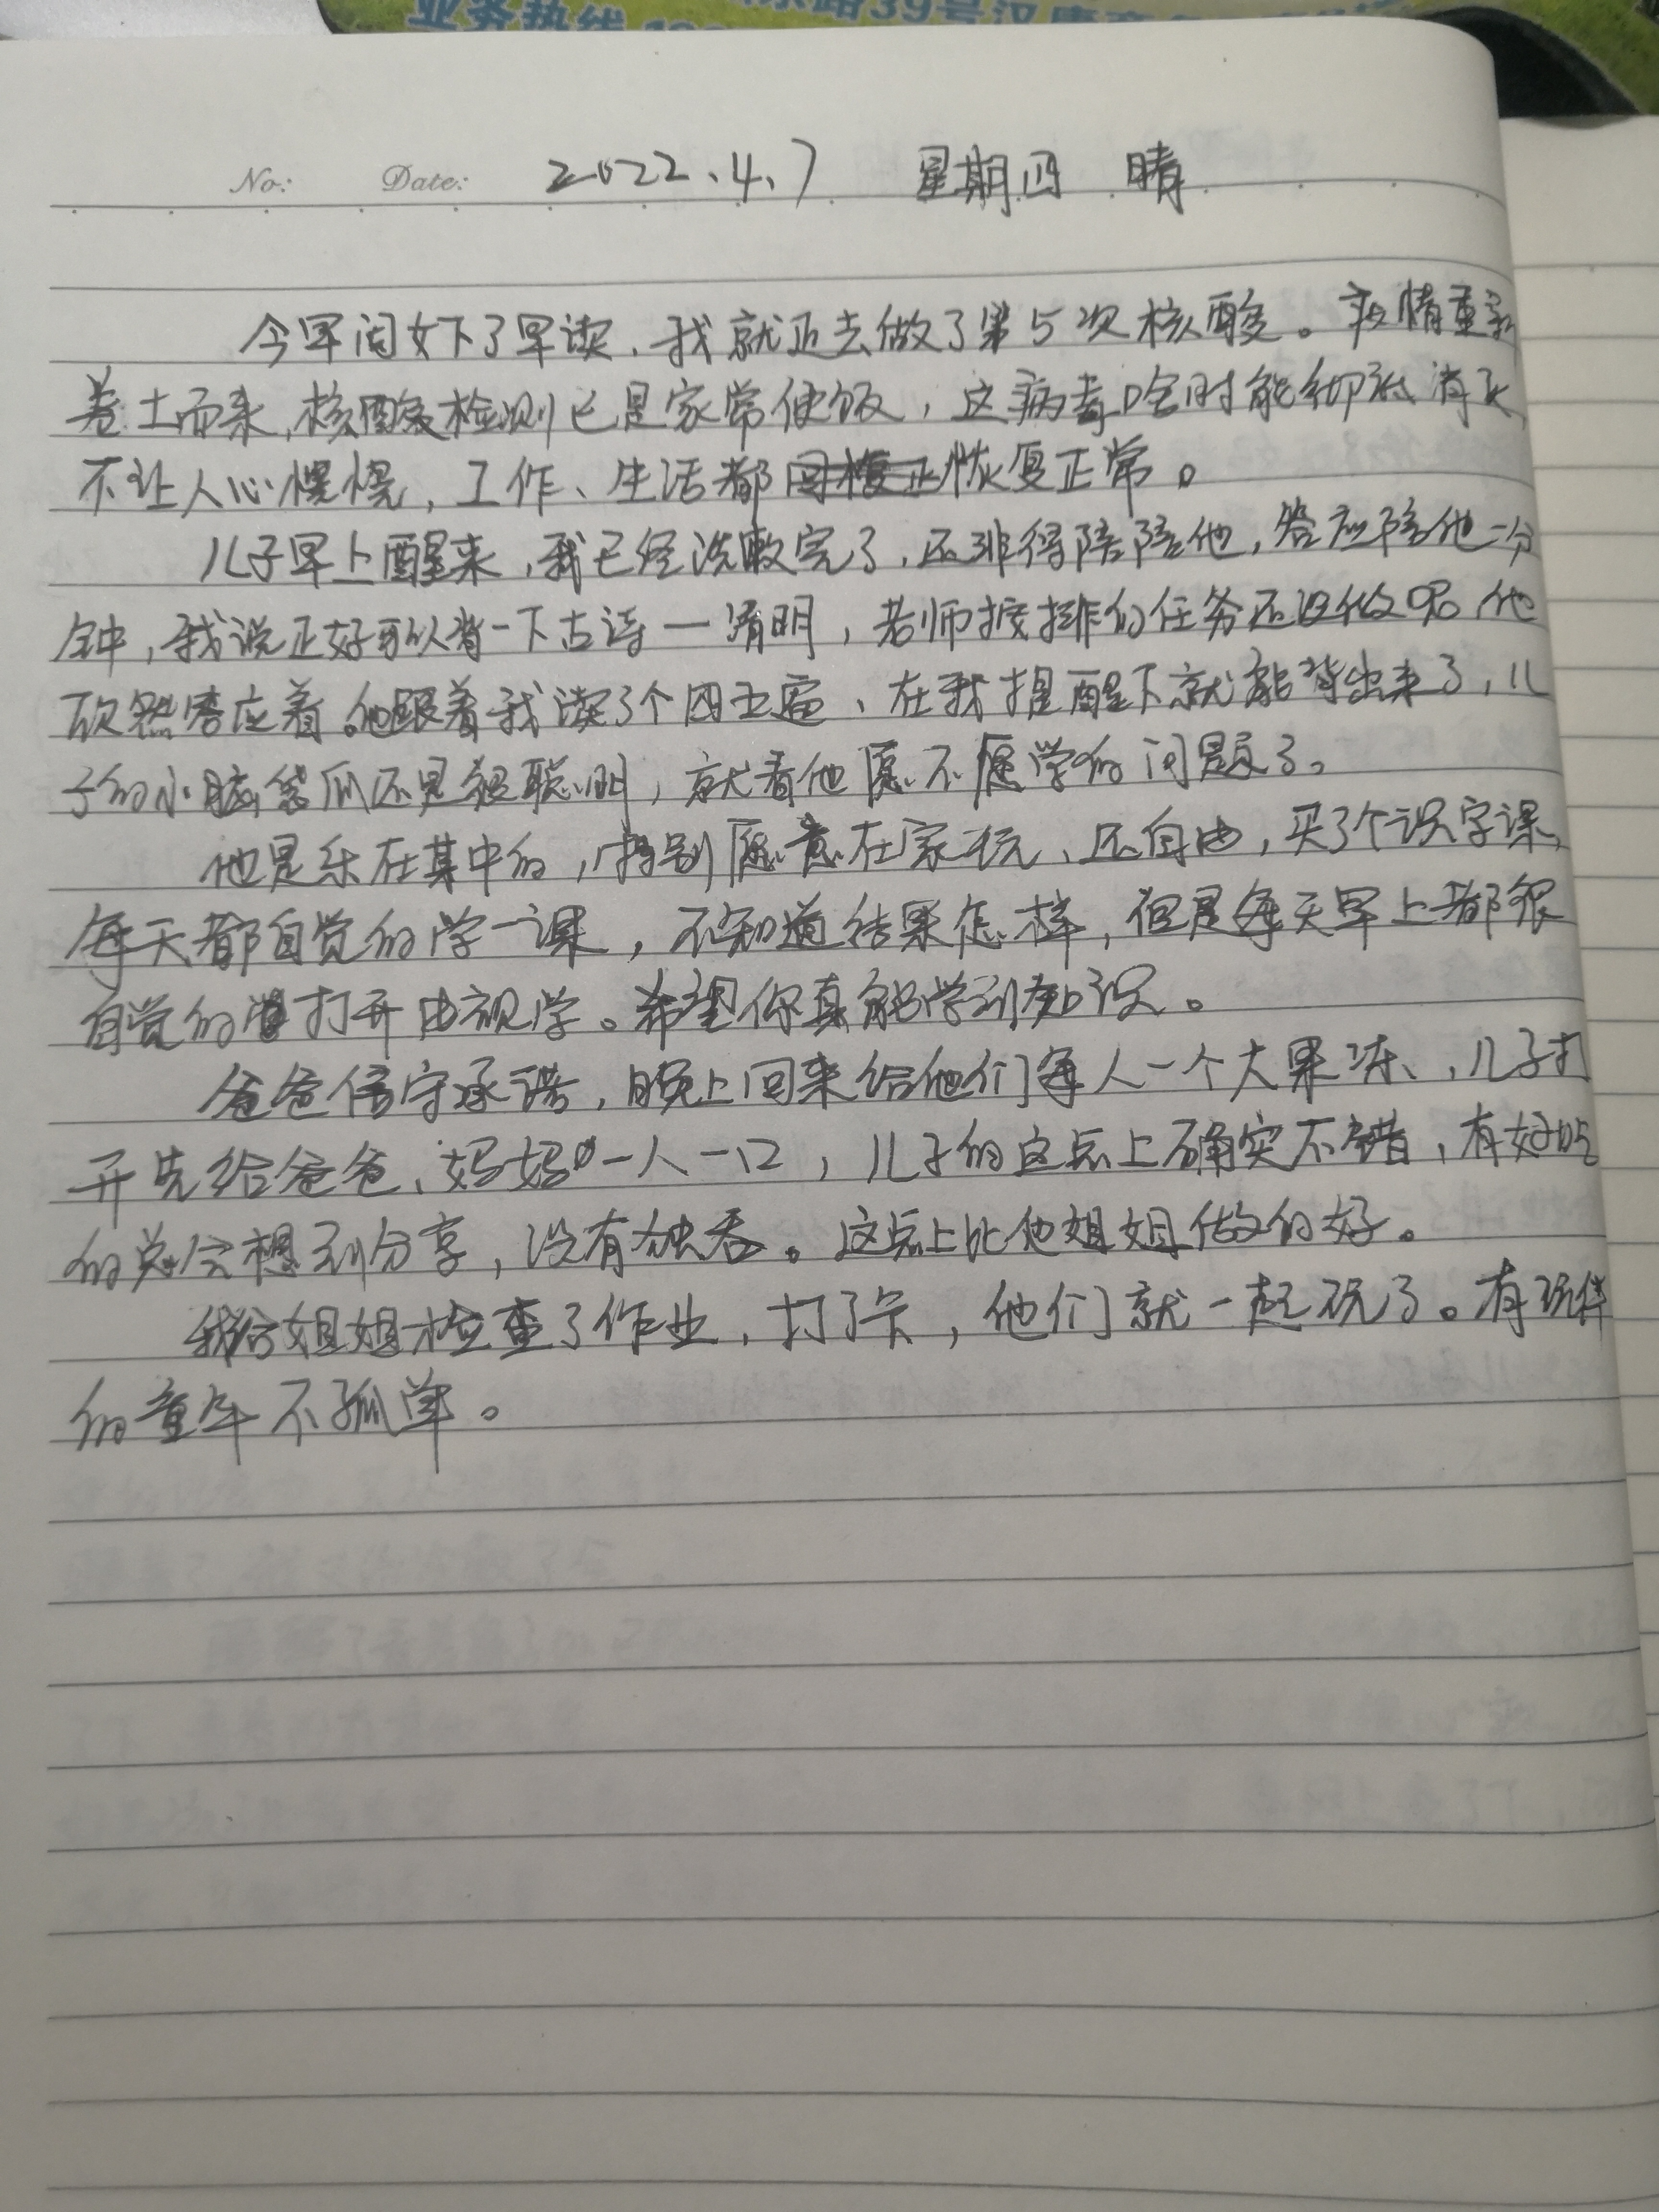 业务热线
路39号汉唐
No: Date: 2022.4.7 星期四 晴
今早闺女下了早读，我就近去做了第5次核酸。疫情重新
卷土而来，核酸检测已是家常便饭，这病毒啥时能彻底消灭，
不让人心慌慌，工作、生活都恢复正常。
儿子早上醒来，我已经洗漱完了，还非得陪陪他，答应陪他一分
钟，我说正好可以背一下古诗一清明，老师按排的任务还没做呢，他
欣然答应着。他跟着我读了个四五遍、在我提醒下就能背出来了，儿
子的小脑袋瓜还是很聪明，就看他愿不愿学的问题了。
他是乐在其中的，特别愿意在家玩、还自由，买了个识字课，
每天都自觉的学一课，不知道结果怎样，但是每天早上都很
自觉的打开电视学。希望你真能学到知识。
爸爸信守承诺，晚上回来给他们每人一个大果冻、，儿子打
开先给爸爸、妈妈一人一口，儿子的这点上确实不错，有好吃
的总会想到分享，没有独吞。这点上比他姐姐做的好。
我给姐姐检查了作业，打了卡，他们就一起玩了。有玩伴
的童年不孤单。